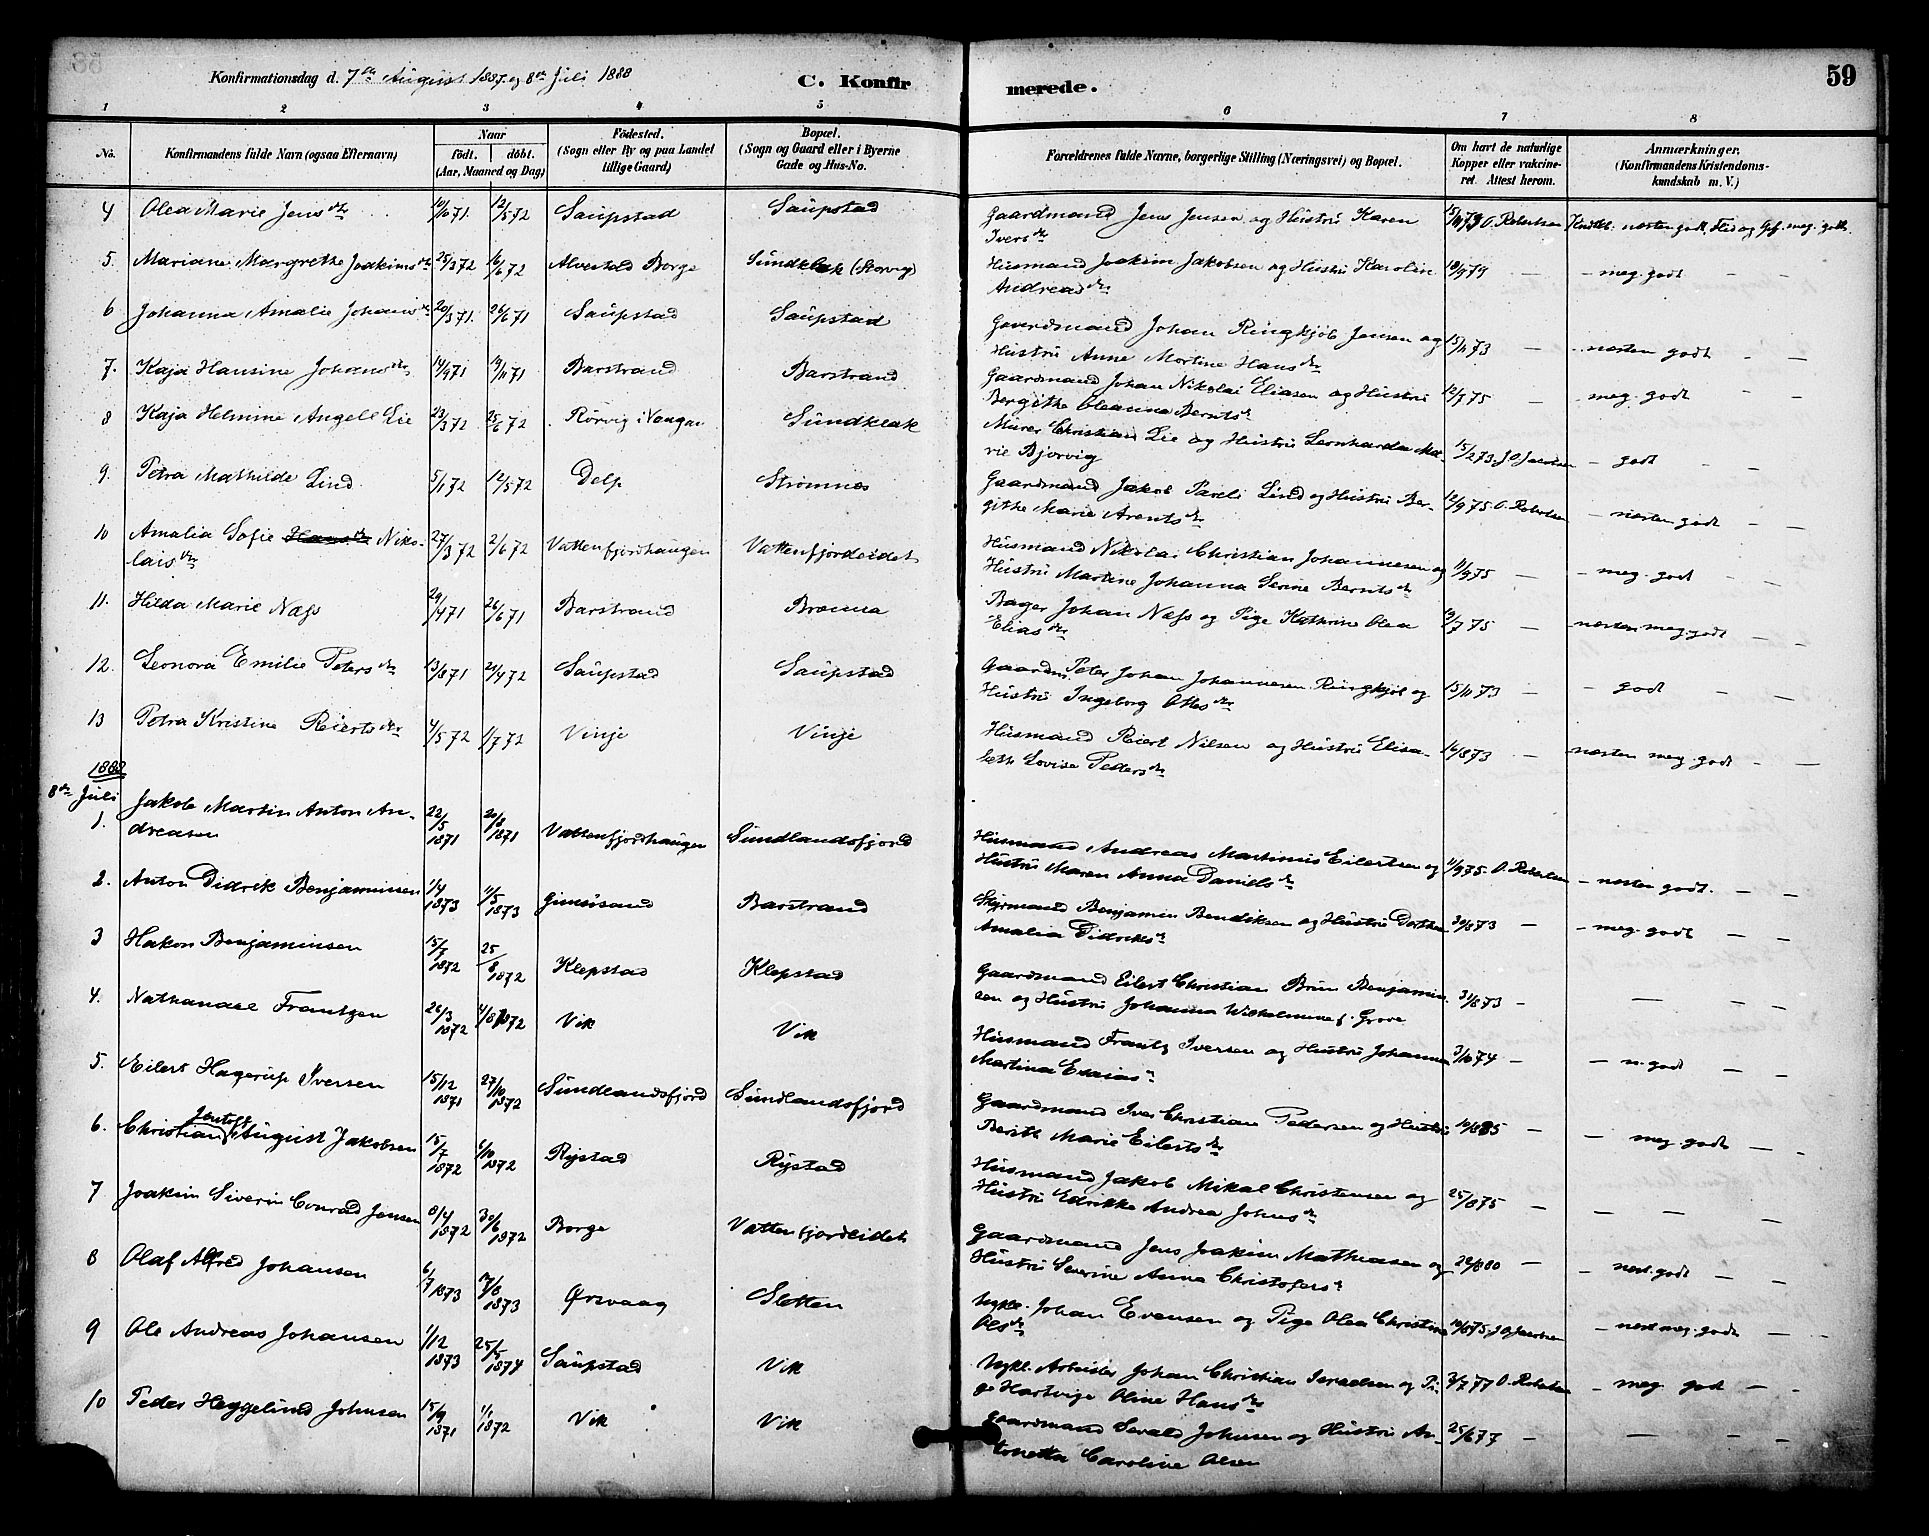 59
Konfirmationsdag d. 7de August 1887 og 8de Juli 1888
C. Konfirmerede.
1 2 3 4 5 6 7 8
No. Konfirmandens fulde Navn (ogsaa Efternavn) Naar født. døbt. (Aar, Maaned og Dag) Fødested. (Sogn eller By og paa Landet tillige Gaard) Bopæl. (Sogn og Gaard eller i Byerne Gade og Hus-No. Forældrenes fulde Navne, borgerlige Stilling (Næringsvei) og Bopæl. Om havt de naturlige Kopper eller vakcineret. Attest herom. Anmærkninger. (Konfirmandens Kristendomskundskab m. V.)
4 Olea Marie Jensdtr 10/10 71. 12/5 72 Saupstad Saupstad Gaardmand Jens Jensen og Hustru Karen
Iversdtr O. Robertsen næsten godt, Flid og meg. godt.
5. Mariane Margrethe Joakimsdtr 25/3 72 16/6 72 Alvestad Borge Sundklak (Storvig) Husmand Joakim Jakobsen og Hustru Karolin
Andreasdtr 18/9 79 — – meg. godt – –
6 Johanna Amalie Johansdtr 20/3 71. 26/6 71 Saupstad Saupstad Gaardmand Johan Ringkjøb Jensen og
Hustru Anne Martine Hansdtr 15/11 73 — næsten godt – –
7. Kaja Hansine Johansdtr 14/9 71 19/11 71 Barstrand Barstrand Gaardmand Johan Nikolai Eliasen og Hustru
Bergithe Oleanna Berntsdtr 12/9 75 — meg. godt – –
8 Kaja Helmine Angell Lie 23/3 72 25/6 72 Rørvig i Vaagan Sundklak Murer Christian Lie og Hustru Leonharda Ma-
rie Bjorvig 15/2 73. J O – godt – –
9. Petra Mathilde Lind 5/1 72 12/5 72 Delp Strømnes Gaardmand Jakob Pareli Lind og Hustru Ber-
githe Marie Arentsdtr 12/9 75 O. Robertsen – næsten godt – –
10 Amalia Sofie Hansdtr Niko-
laisdtr 27/3 72 2/6 72 Vattenfjordhaugen Vattenfjordeidet Husmand Nikolai Christian Johannesen og
Hustru Martine Johanna Serine Berntsdtr 11/9 75 — – meg. godt – –
11. Hilda Marie Næss 29/4 71 26/6 71 Barstrand Brenna Bager Johan Næss og Pige Kathrine Olea
Eliasdtr 19/7 75 — næsten meg. godt – –
12. Leonora Emilie Petersdtr 13/8 71 21/4 72 Saupstad Saupstad Gaardm. Peter Johan Johannesen Ringkjøb og
Hustru Ingeborg Ottesdtr 15/11 73 — – godt – –
13 Petra Kristine Reiertsdtr 4/5 72 1/7 72 Vinje Vinje Husmand Reiert Nilsen og Hustru Elisa-
beth Lovise Pedersdtr 16/8 73 — næsten meg. godt – —
1888
8de Juli
1. Jakob Martin Anton An-
dreasen 22/5 1871 20/8 1871 Vattenfjordhaugen Sundlandsfjord Husmand Andreas Martinus Eilertsen og
Hustru Maren Anna Danielsdtr 11/9 75. O. Robertsen – næsten godt. – –
2. Anton Didrik Benjaminsen 1/4 1873 11/5 1873 Gimsøsand Barstrand Styrmand Benjamin Bendiksen og Hustru Dorthea
Amalia Didriksdtr 30/8 73 — – meg. godt – –
3 Hakon Benjaminsen 15/7 1872 25/8 1872 Klepstad Klepstad Gaardmand Eilert Christian Brun Benjamin-
sen og Hustru Johanna Wilhelmine f. Grove 31/8 73 – — – –
4. Nathanael Frantzen 26/3 1872 4/8 1872 Vik Vik Husmand Frantz Iversen og Hustru Johanna
Martina Esaiasdtr 3/10 74 – – n. godt – –
5. Eilert Hagerup Iversen 15/12 1871 27/10 1872 Sundlandsfjord Sundlandsfjord Gaardmand Iver Christian Pedersen og Hustru
Berith Marie Eilertsdtr — – meg godt – –
6. Christian Jentoft August Jakobsen 15/7 1872 6/10 1872 Rystad Rystad Husmand Jakob Mikal Christensen og
Hustru Edrikke Andrea Johnsdtr 25/8 75 – — — –
7 Joakim Siverin Conrad Jensen 8/4 1872 30/6 1872 Borge Vattenfjordeidet Gaardmand Jens Joakim Mathiasen og
Hustru Severine Anna Christofersdtr 22/8 80 — – næst. godt – –
8 Olaf Alfred Johansen 6/7 1873 17/8 1873 Ørsvaag Sletten Ugkl. Johan Evensen og Pige Olea Christine
Olsdtr – næst meg. godt – –
9 Ole Andreas Johansen 1/12 1873 25/5 1874 Saupstad Vik Ugkl. Arbeider Johan Christian Israelsen og Pi-
ge Hartvige Oline Hansdtr 3/7 77 O. Robertsen – meg. god – –
10 Peder Heggelund Johnsen 15/9 1871 1/1 1872 Vik Vik Gaardmand Sevald Johnsen og Hustru An-
tonetta Caroline Olsen 25/6 77 – — – –